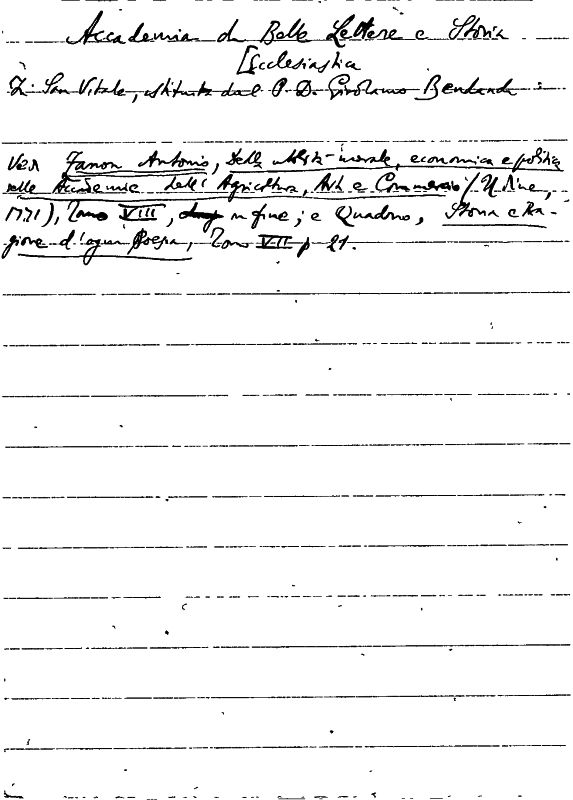 Accademia di Belle Lettere e Storia
[Ecclesiastica
In San Vitale, istituita dal P. D. Girolamo Bendandi :
Vedi Zanon Antonio, Della utilità morale, economica e politica
delle Accademie dell' Agricoltura, Arti e Commercio (Udine,
1771), Tomo VIII, in fine; e Quadrio, Storia e Ra-
gione d'ogni Poesia, Tomo VII p. 21.